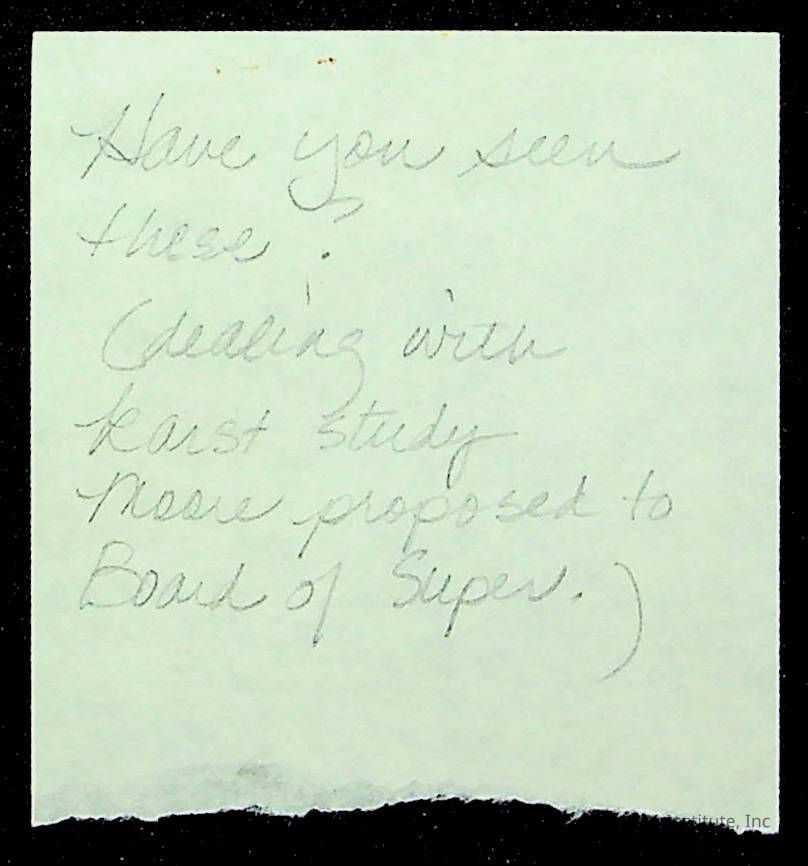 Have you seen
these?
(dealing with
karst study
Moore proposed to
Board of Super.)
Institute, Inc